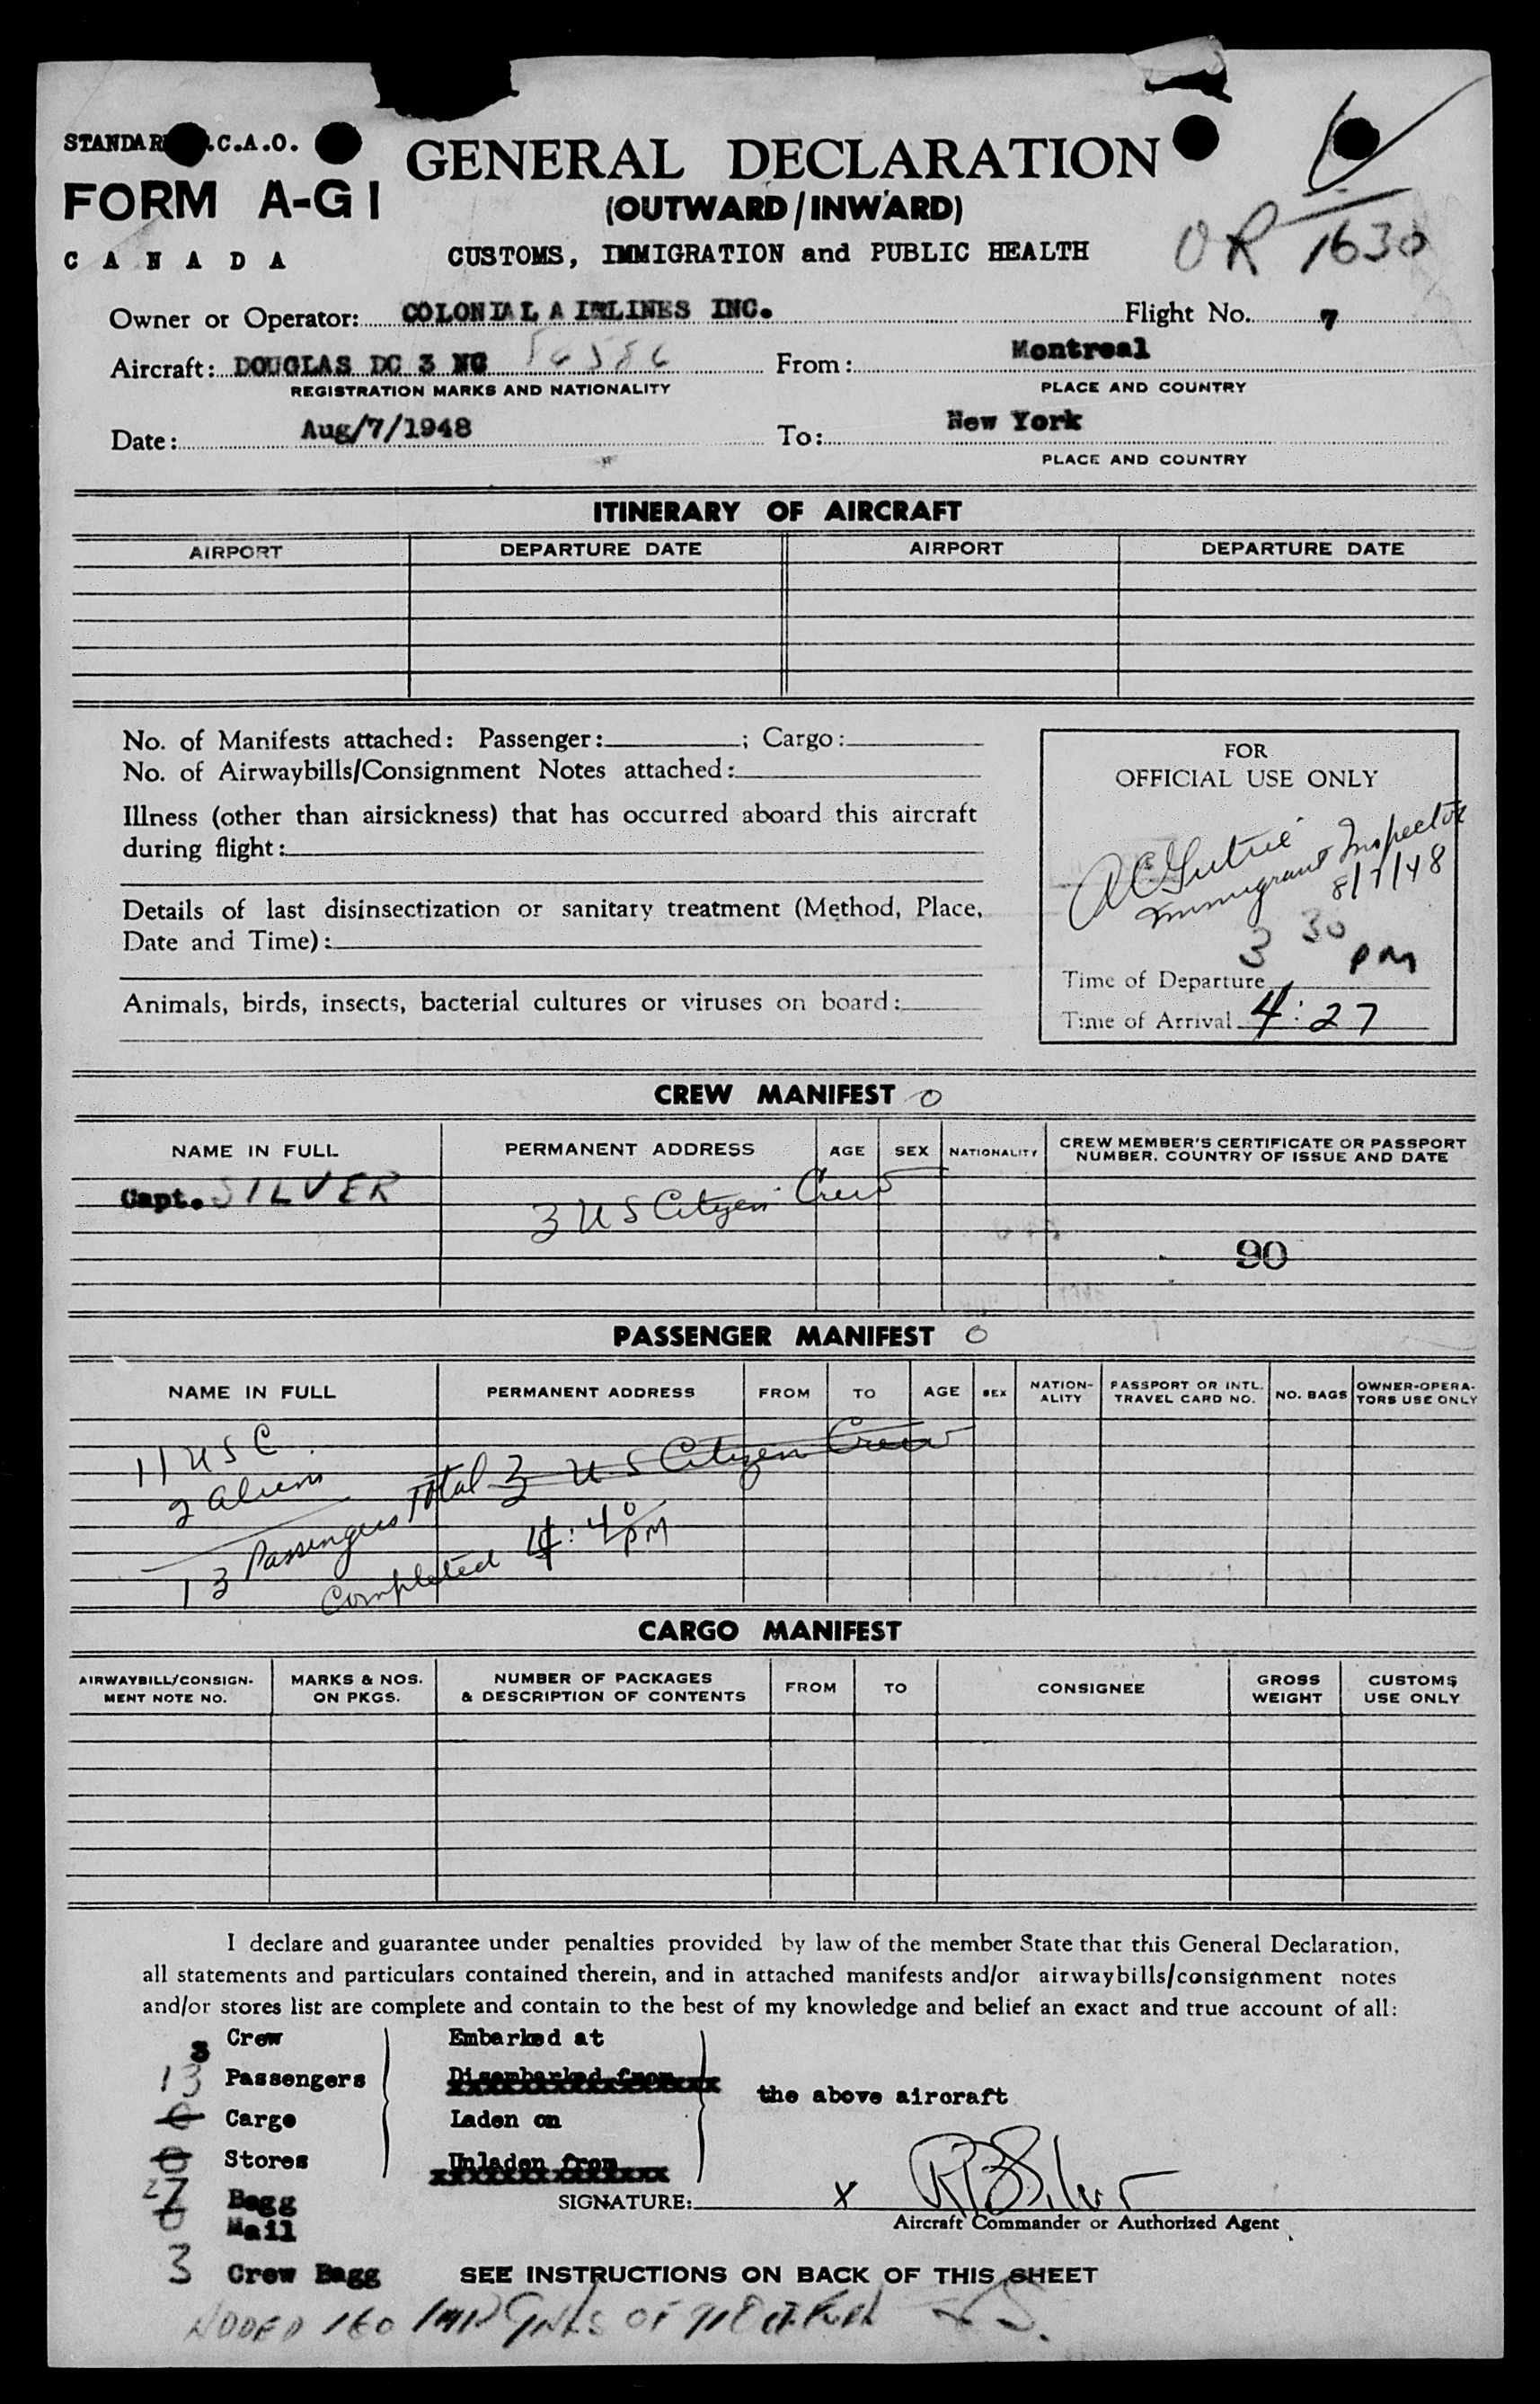 STANDARD .C.A.O.
FORM A-G1
CANADA
GENERAL DECLARATION
(OUTWARD/INWARD)
CUSTOMS, IMMIGRATION and PUBLIC HEALTH
OR 1630
Owner or Operator: COLONIAL AIRLINES INC. Flight No. 7
Aircraft: DOUGLAS DC 3 NC 56586 From: Montreal
REGISTRATION MARKS AND NATIONALITY PLACE AND COUNTRY
Date: Aug/7/1948 To: New York
PLACE AND COUNTRY
ITINERARY OF AIRCRAFT
AIRPORT DEPARTURE DATE AIRPORT DEPARTURE DATE
No. of Manifests attached: Passenger: ; Cargo:
No. of Airwaybills/Consignment Notes attached:
Illness (other than airsickness) that has occurred aboard this aircraft
during flight:
Details of last disinsectization or sanitary treatment (Method, Place,
Date and Time):
Animals, birds, insects, bacterial cultures or viruses on board:
FOR
OFFICIAL USE ONLY
Immigrant Inspector
8/7/48
3 30 PM
Time of Departure
Time of Arrival 4:27
CREW MANIFEST 0
NAME IN FULL PERMANENT ADDRESS AGE SEX NATIONALITY CREW MEMBER'S CERTIFICATE OR PASSPORT NUMBER. COUNTRY OF ISSUE AND DATE
Capt. SILVER
3 US Citizen Crew
90
PASSENGER MANIFEST 0
NAME IN FULL PERMANENT ADDRESS FROM TO AGE SEX NATION-ALITY PASSPORT OR INTL. TRAVEL CARD NO. NO. BAGS OWNER-OPERA-TORS USE ONLY
11 USC
2 Aliens
13 Passengers Total 3 US Citizen Crew
Completed 4:40 PM
CARGO MANIFEST
AIRWAYBILL/CONSIGN-MENT NOTE NO. MARKS & NOS. ON PKGS. NUMBER OF PACKAGES & DESCRIPTION OF CONTENTS FROM TO CONSIGNEE GROSS WEIGHT CUSTOMS USE ONLY
I declare and guarantee under penalties provided by law of the member State that this General Declaration,
all statements and particulars contained therein, and in attached manifests and/or airwaybills/consignment notes
and/or stores list are complete and contain to the best of my knowledge and belief an exact and true account of all:
3 Crew Embarked at
13 Passengers Disembarked from
the above aircraft
0 Cargo Laden on
0 Stores Unladen from
27 Bagg
0 Mail
SIGNATURE: X R B Silver
Aircraft Commander or Authorized Agent
3 Crew Bagg
SEE INSTRUCTIONS ON BACK OF THIS SHEET
ADDED 160 IMP GALS OF